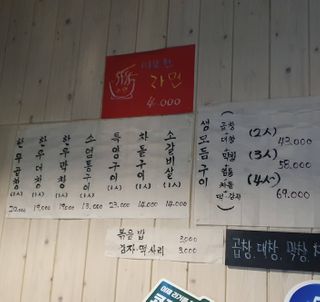 라면
4.000
한우곱창 (1人) 20.000
한우대창 (1人) 19.000
한우막창 (1人) 19.000
소염통구이 (1人) 13.000
특양구이 (1人) 23.000
차돌구이 (1人) 14.000
소갈비살 (1人) 14.000
쌤모듬구이
곱창
+대창
+막창
+염통
(2人)
43.000
(3人)
58.000
(4人)
69.000
볶음밥 3,000
감자·떡사리 3,000
곱창, 대창, 막창,